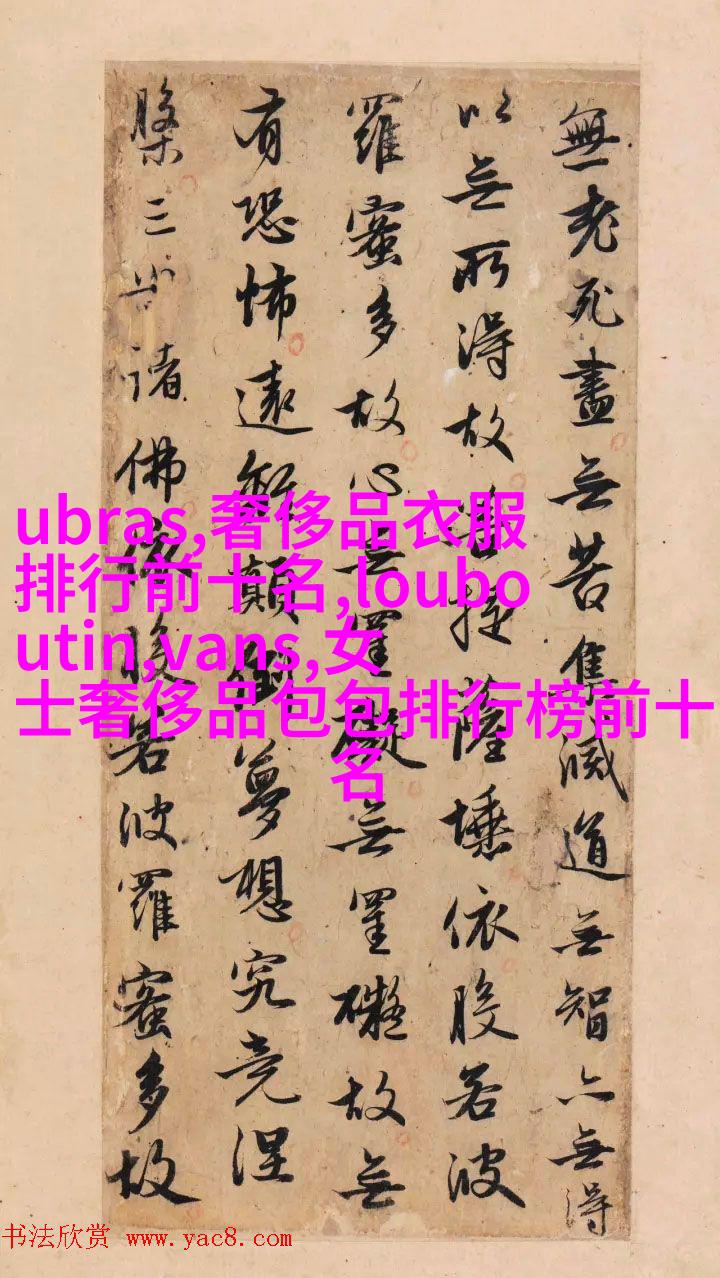 無老死盡無苦集滅道無智亦無得
以無所得故菩提薩埵依般若波
羅蜜多故心無罣礙無罣礙故無
有恐怖遠離顛倒夢想究竟涅
槃三世諸佛依般若波羅蜜多故
ubras,奢侈品衣服
排行前十名,loubo
utin,vans,女
士奢侈品包包排行榜前十
名
书法欣赏 www.yac8.com